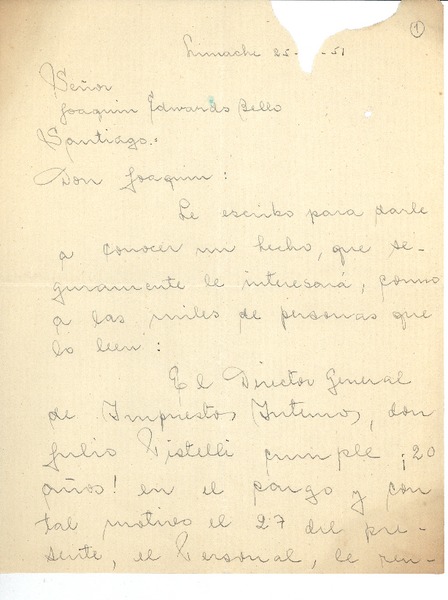 1
Limache 25- -51
Señor
Joaquin Edwards Bello
Santiago.:
Don Joaquin:
Le escribo para darle
a conocer un hecho, que se-
guramente le interesará, como
a las miles de personas que
lo leen:
El Director General
de Impuestos Internos, don
Julio Pistelli cumple ¡20
años! en el cargo y con
tal motivo el 27 del pre-
sente, el Personal, le ren-